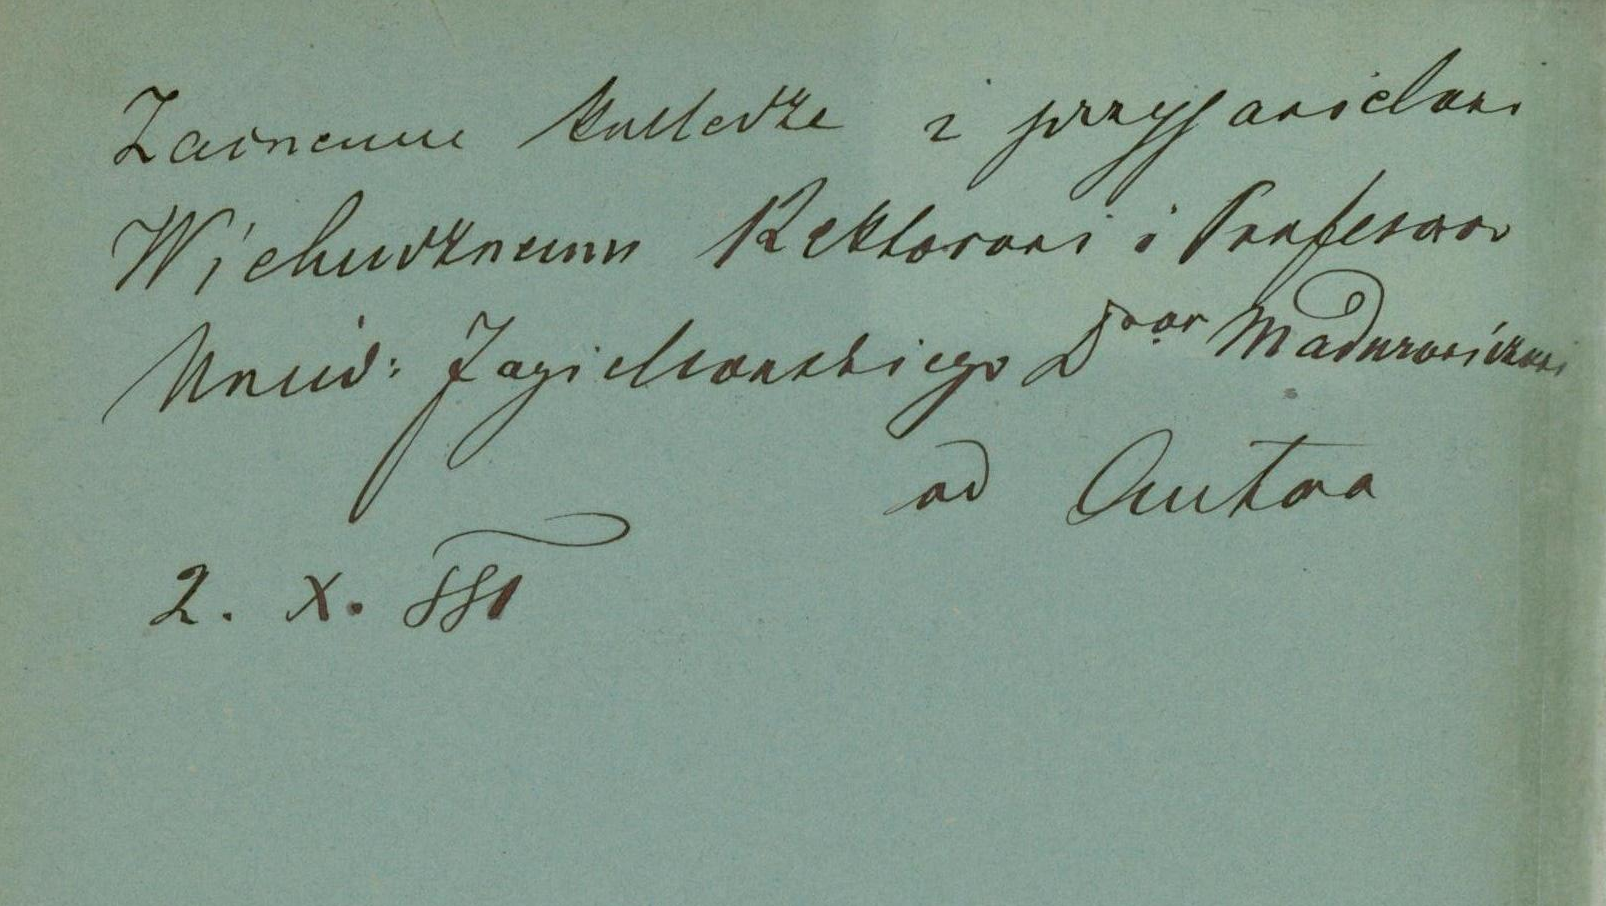 Zacnemu Kolledze i przyjacielowi
Wielmożnemu Rektorowi i Profesorowi
Uniw: Jagiellońskiego Drowi Madurowiczowi
od Autora
2. X. 881